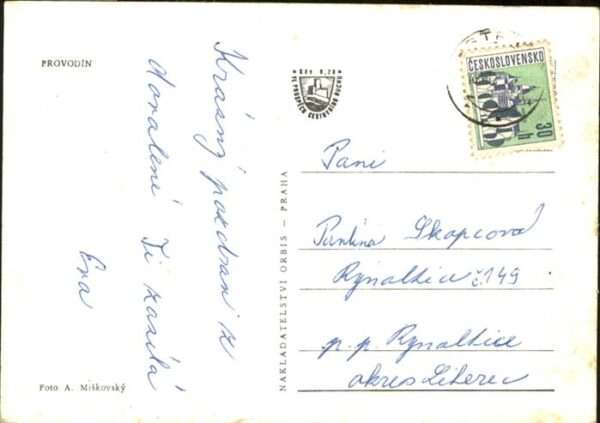 PROVODÍN
Krásný pozdrav z
dovolené Ti zasílá
Eva
Foto A. Miškovský
NAKLADATELSTVÍ ORBIS — PRAHA
ČESKOSLOVENSKO
30 h
Paní
Pavlína Skopcová
Rynoltice č. 149
p. p. Rynoltice
okres Liberec